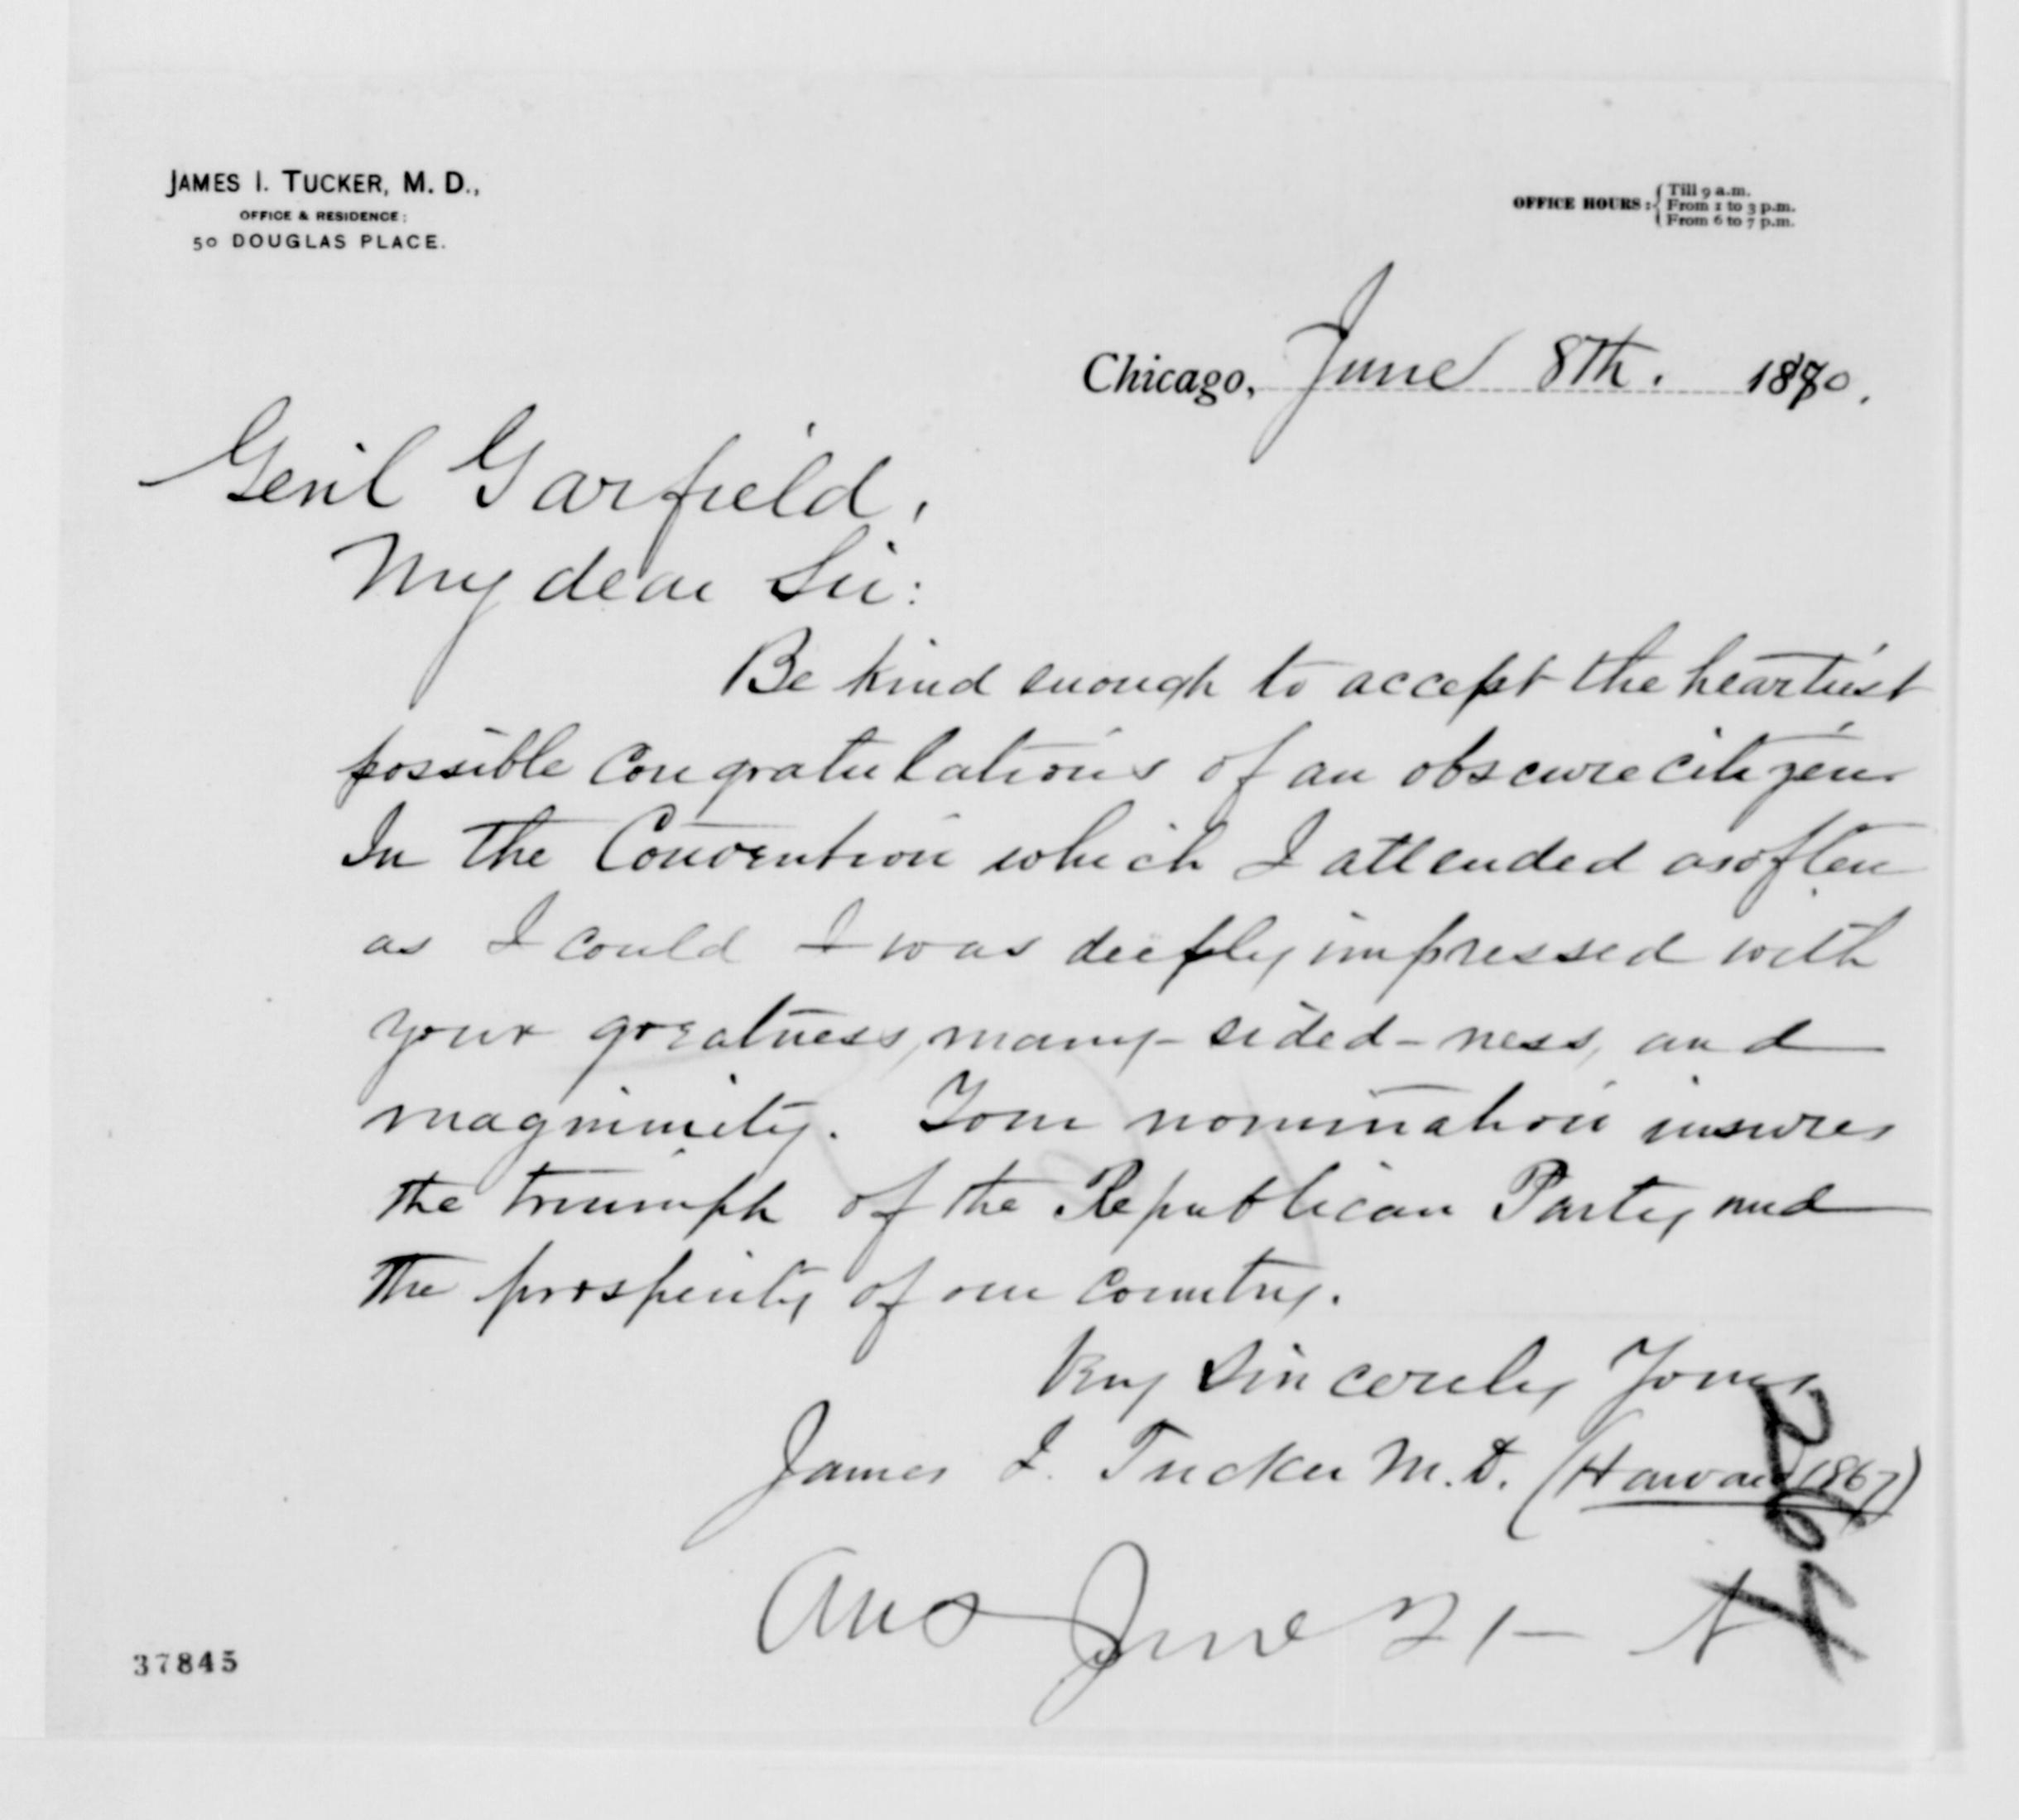 JAMES I. TUCKER, M. D.,
OFFICE & RESIDENCE:
50 DOUGLAS PLACE.
OFFICE HOURS: Till 9 a.m.
From 1 to 3 p.m.
From 6 to 7 p.m.
Chicago, June 8th. 1880.
Genl Garfield,
My dear Sir:
Be kind enough to accept the heartiest
possible congratulations of an obscure citizen
In the Convention which I attended as often
as I could I was deeply impressed with
your greatness, many-sided-ness, and
magnimity. Your nomination insures
the triumph of the Republican Party and
the prosperity of our country.
Very Sincerely Yours
James I. Tucker M.D. (Harvard 1867)
264
Ans June 21 -
37845